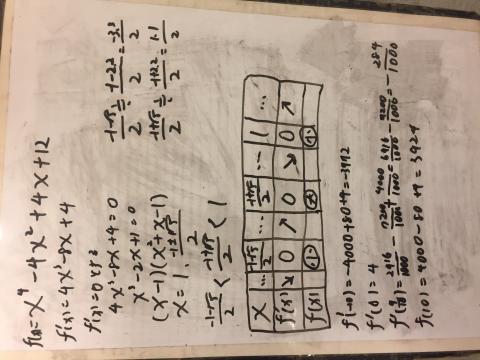 f(x)=x⁴-4x²+4x+12
f'(x)=4x³-8x+4
f'(x)=0とする
4x³-8x+4=0
x³-2x+1=0
(x-1)(x²+x-1)
x=1, (-1±√5)/2
(-1-√5)/2≒(-1-2.2)/2=-3.2/2
(-1+√5)/2≒(-1+2.2)/2
(-1-√5)/2<(-1+√5)/2<1
x … (-1-√5)/2 … (-1+√5)/2 … 1 …
f'(x) ↘ 0 ↗ 0 ↘ 0 ↗
f(x) 小 大 小
f'(-10)=-4000+80+4=-3912
f'(0)=4
f'(9/10)=2916/1000-7200/1000+4000/1000=6916/1000-7200/1000=-284/1000
f'(10)=4000-80+4=3924